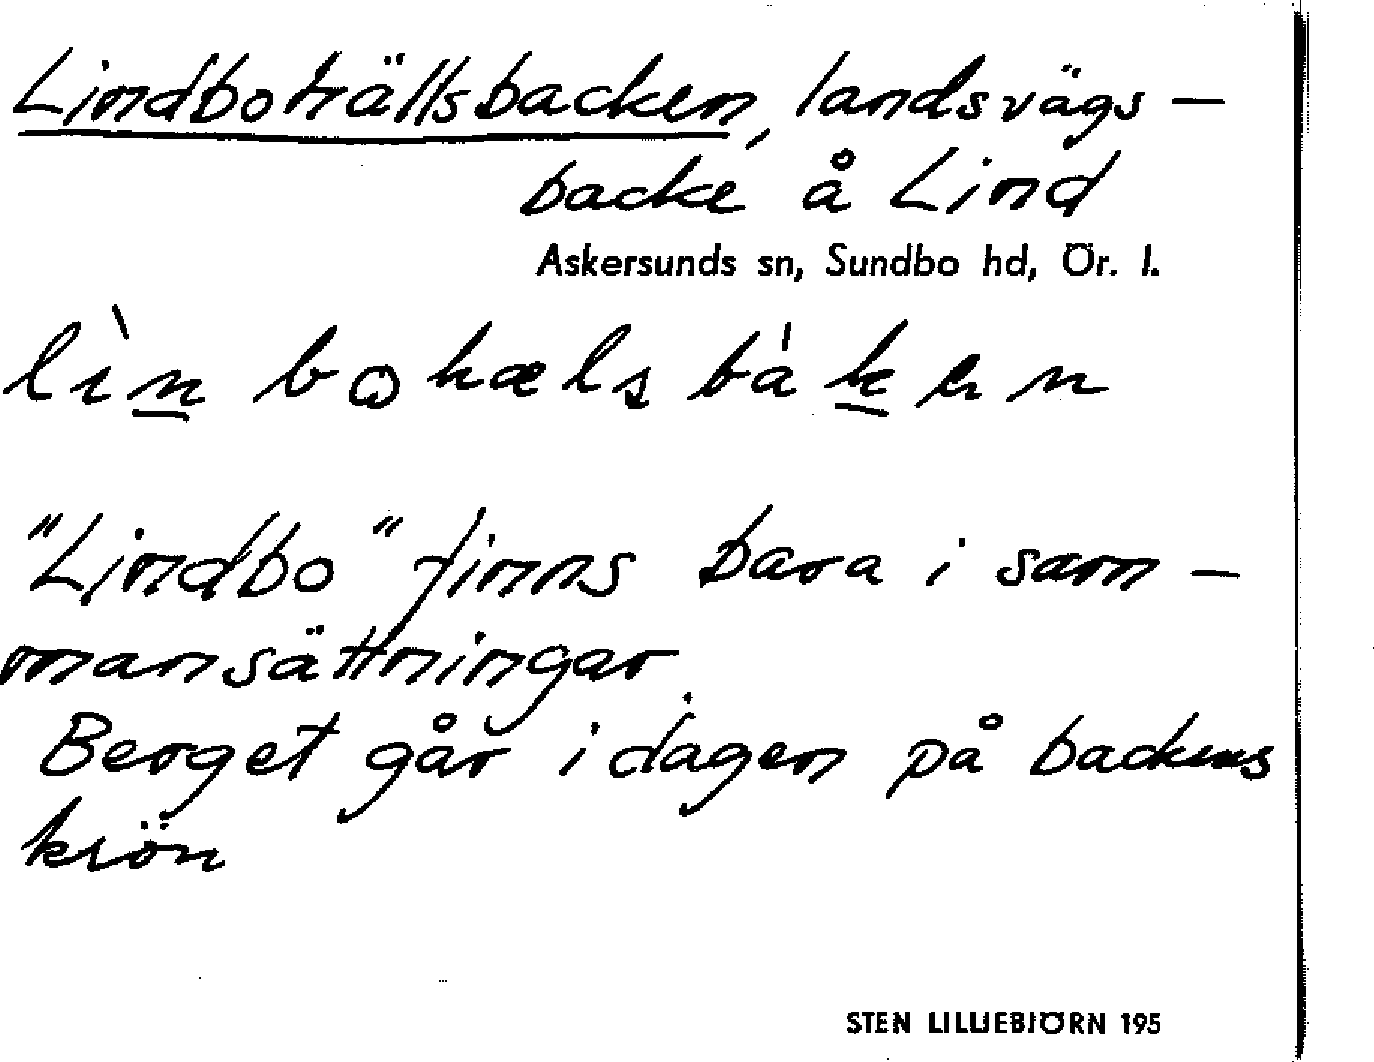 Lindboträllsbacken, landsvägs-
backe å Lind
Askersunds sn, Sundbo hd, Ör. l.
"Lindbo" finns bara i sam-
mansättningar.
Berget går i dagen på backens
krön
STEN LILLIEBJÖRN 195